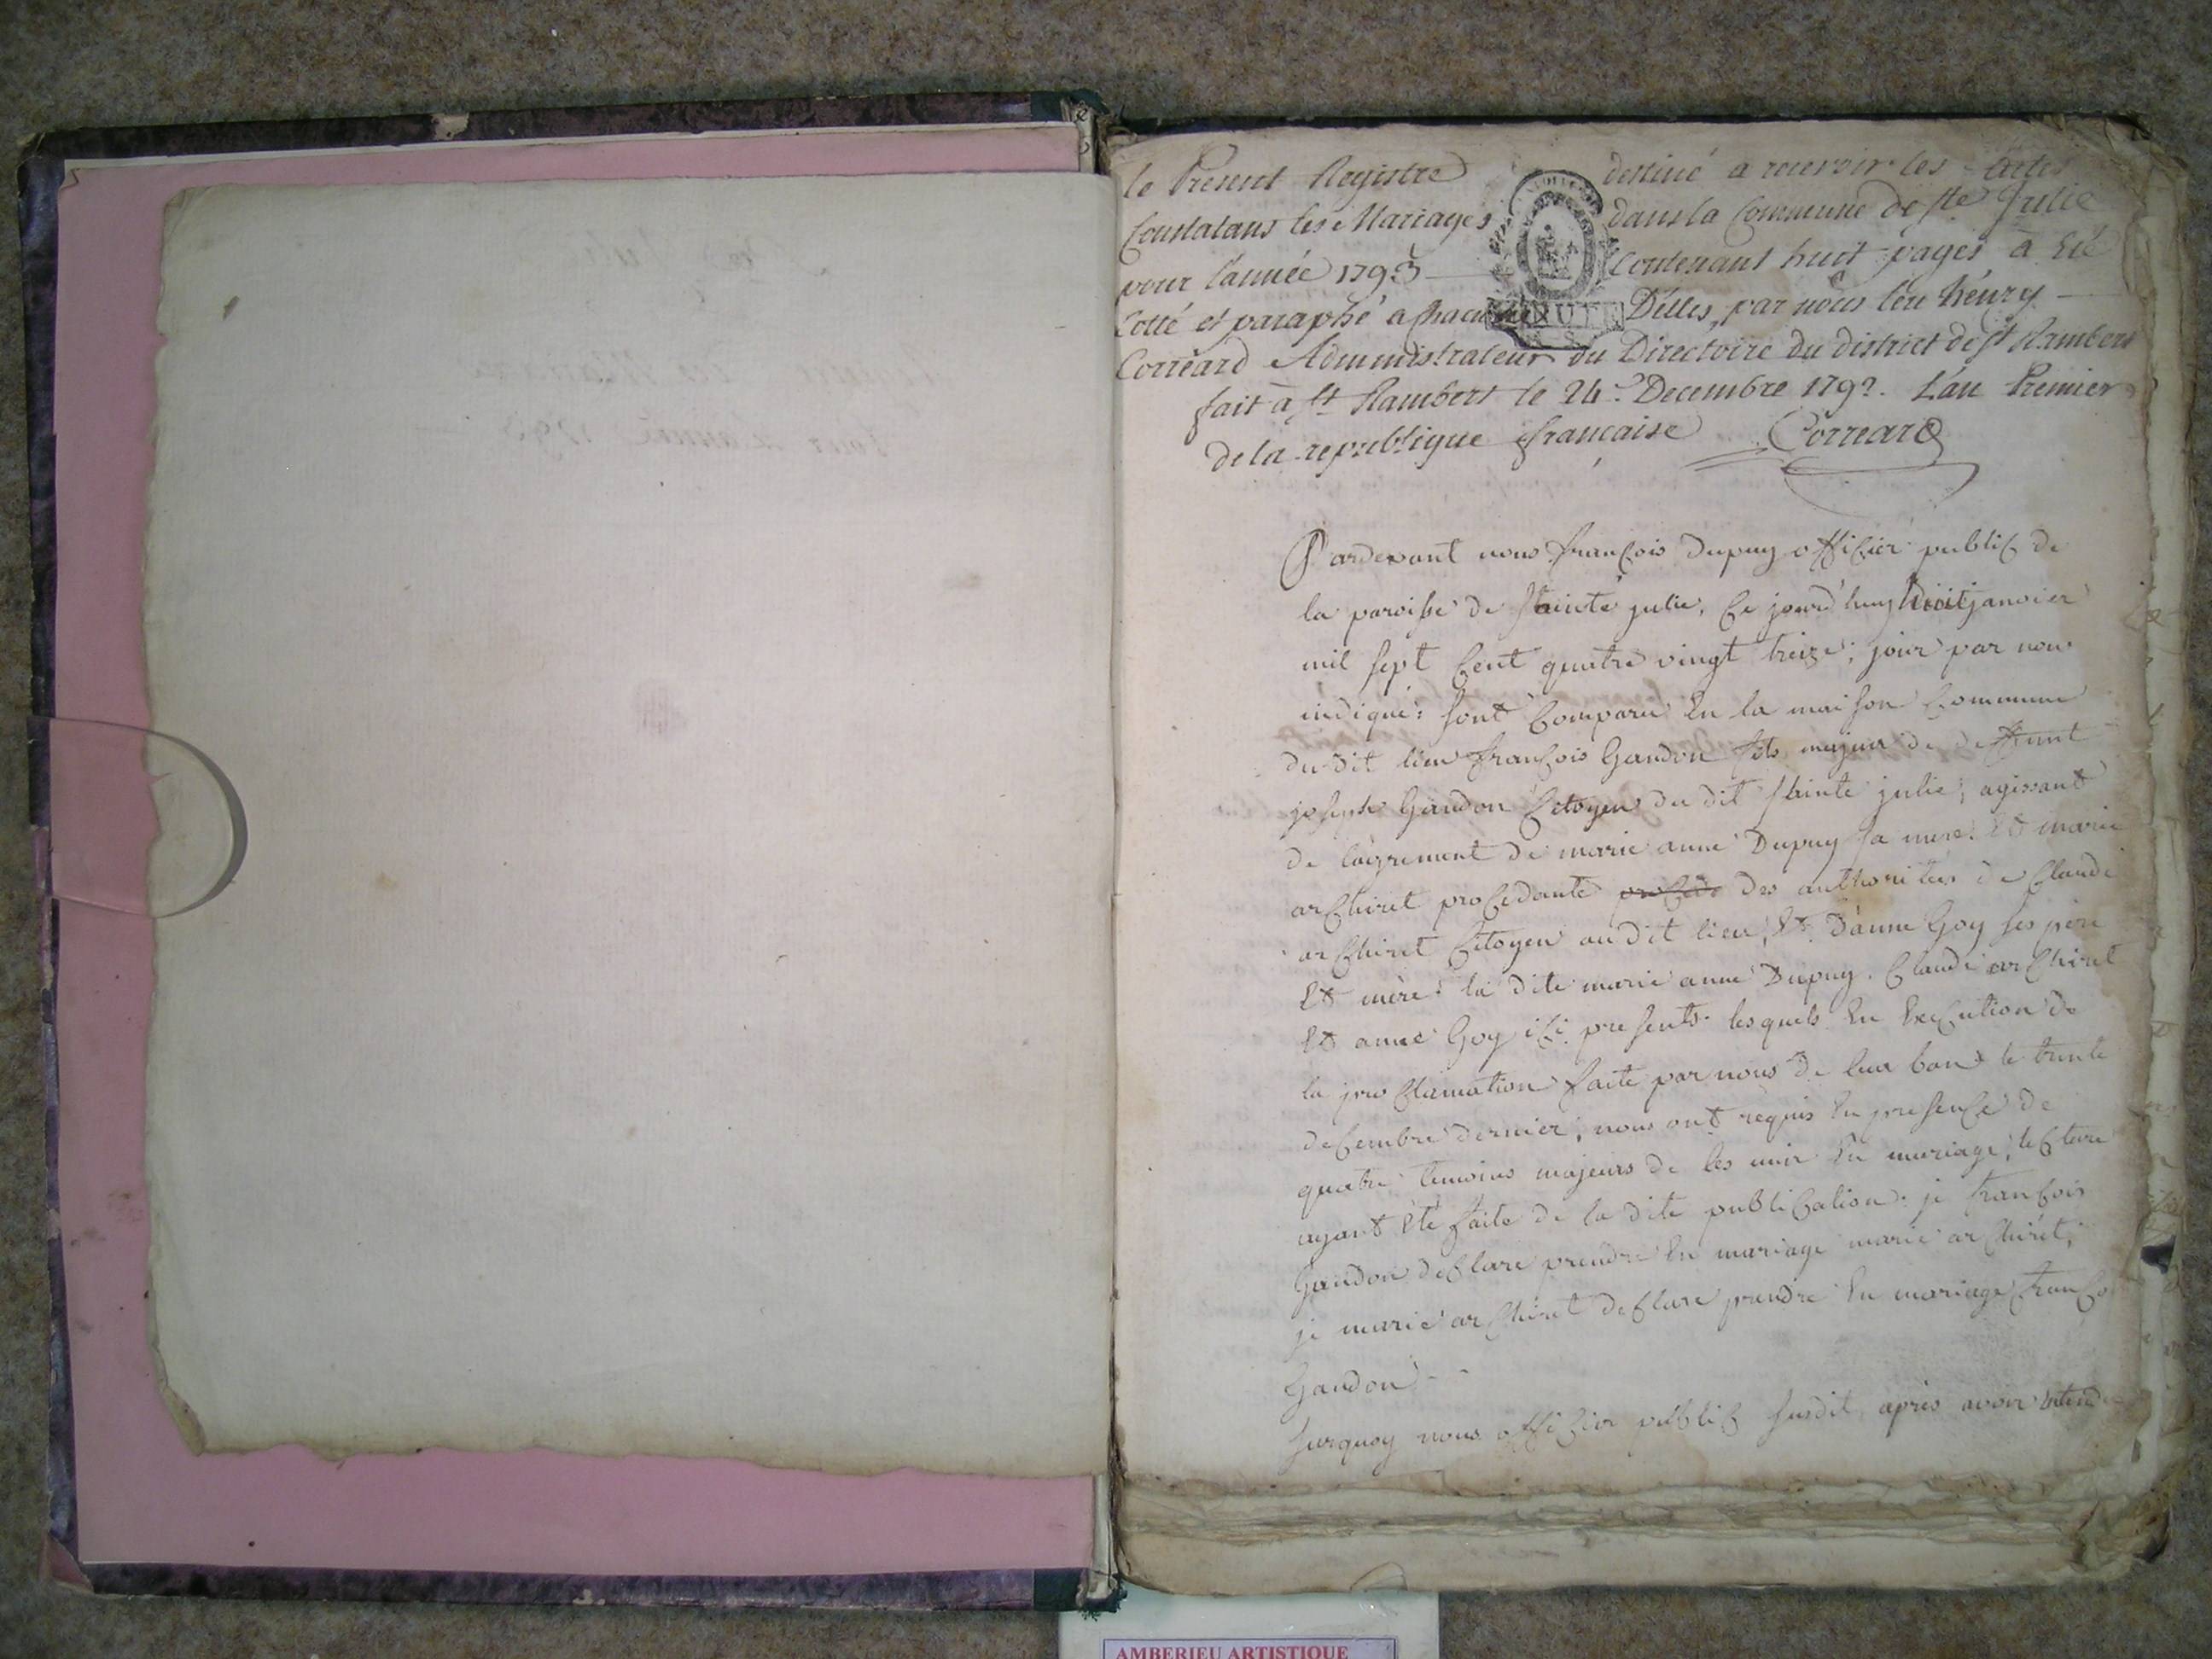 le Présent Registre destiné a recevoir les Actes
Constatans les Mariages dans la Commune de Ste Julie
pour l'année 1793 Contenant huit pages à Eté
Cotté et paraphé a chacune D'elles, par nous léu hénry
MINUTE
Corréard Administrateur du Directoire du district de St Rambert
fait à St Rambert le 24e Decembre 1792. L'an Premier
de la republique française Correard
Pardevant nous françois Dupuy officier public de
la paroisse de sainte julie, Ce jourd'huy huit janvier
mil sept Cent quatre vingt treize; jour par nous
indiqué: sont Comparu En la maison Commune
du dit lieu françois Gandon fils majeur de deffunt
joseph Gandon Citoyen du dit sainte julie; agissant
de l'agrement de marie anne Dupuy sa mere. Et marie
archiret procedante procede des authorités de Claude
archiret Citoyen audit lieu, Et d'anne Goy ses père
Et mère: la dite marie anne Dupuy. Claude archiret
Et anne Goy ici presents. lesquels En Execution de
la proclamation faite par nous de leur bans le trente
decembre dernier; nous ont requis En presence de
quatre temoins majeurs de les unir En mariage; lecture
ayant Eté faite de la dite publication: je francois
Gandon declare prendre En mariage marie archiret;
je marie archiret declare prendre En mariage franco
Gandon
surquoy nous officier public susdit, apres avoir entendu
AMBERIEU ARTISTIQUE